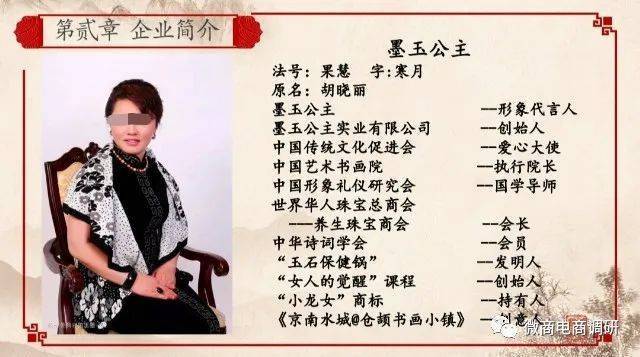 第贰章 企业简介
墨玉公主
法号：果慧 字:寒月
原名：胡晓丽
墨玉公主 --形象代言人
墨玉公主实业有限公司 --创始人
中国传统文化促进会 --爱心大使
中国艺术书画院 --执行院长
中国形象礼仪研究会 --国学导师
世界华人珠宝总商会
---养生珠宝商会 --会长
中华诗词学会 --会员
“玉石保健锅” --发明人
“女人的觉醒”课程 --创始人
“小龙女”商标 --持有人
《京南水城@仓颉书画小镇》--创意人
微商电商调研